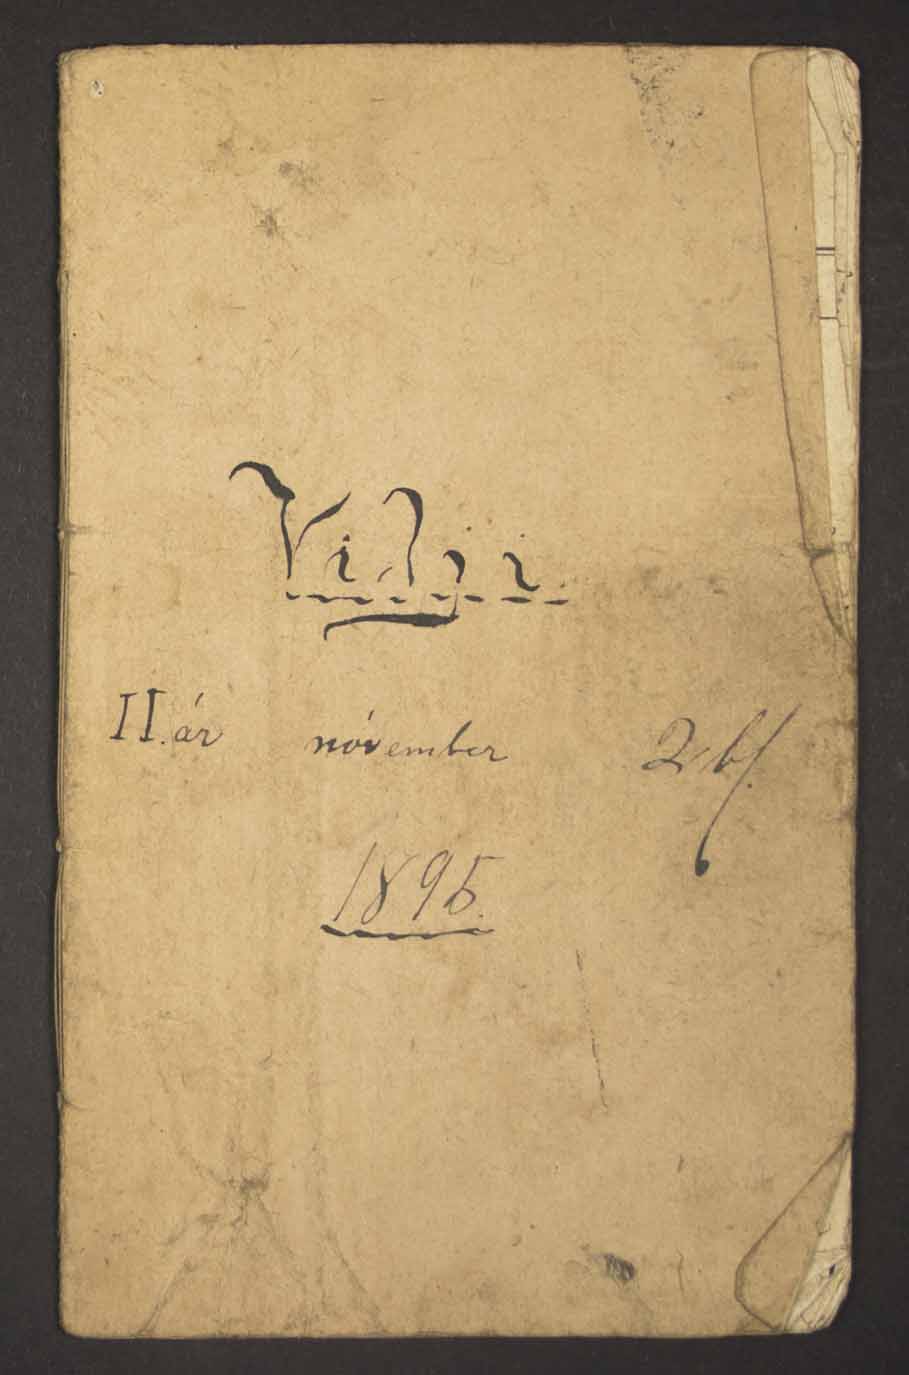 Vilji.
II. ár nóvember 2. bl.
1895.